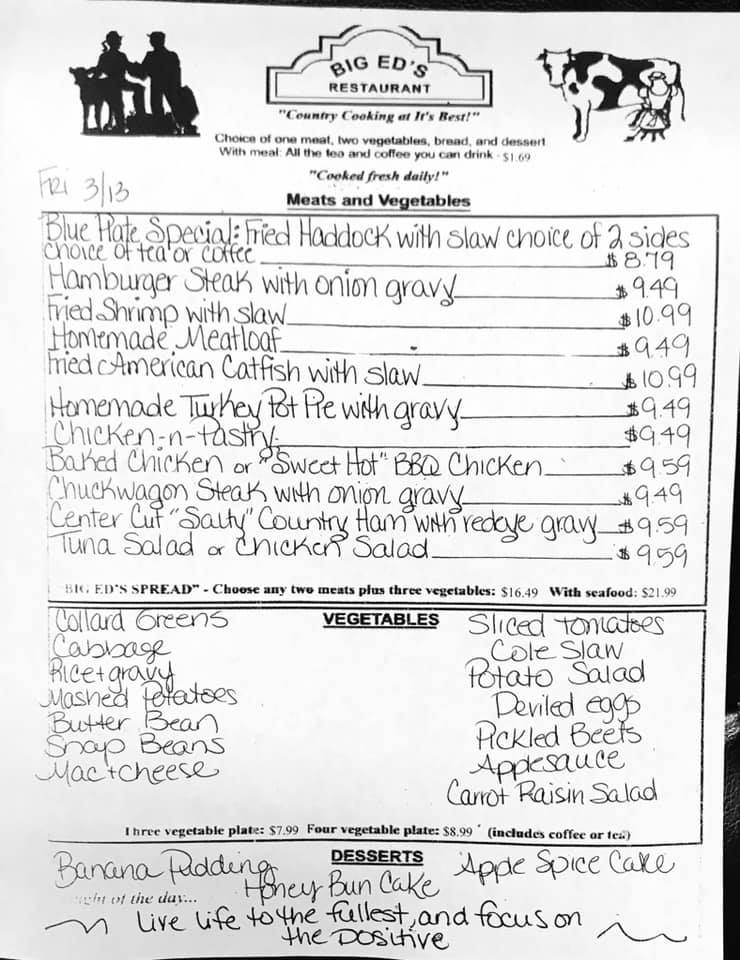 BIG ED'S
RESTAURANT
"Country Cooking at It's Best!"
Choice of one meat, two vegetables, bread, and dessert
With meal: All the tea and coffee you can drink - $1.69
"Cooked fresh daily!"
FRI 3/13
Meats and Vegetables
Blue Plate Special: Fried Haddock with slaw choice of 2 sides
choice of tea or coffee $8.79
Hamburger Steak with onion gravy $9.49
Fried Shrimp with slaw $10.99
Homemade Meatloaf $9.49
Fried American Catfish with slaw $10.99
Homemade Turkey Pot Pie with gravy $9.49
Chicken-n-Pastry $9.49
Baked Chicken or "Sweet Hot" BBQ Chicken $9.59
Chuckwagon Steak with onion gravy $9.49
Center Cut "Salty" Country Ham with redeye gravy $9.59
Tuna Salad or Chicken Salad $9.59
BIG ED'S SPREAD" - Choose any two meats plus three vegetables: $16.49 With seafood: $21.99
VEGETABLES
Collard Greens
Cabbage
Rice + gravy
Mashed Potatoes
Butter Bean
Snap Beans
Mac + cheese
Sliced tomatoes
Cole Slaw
Potato Salad
Deviled eggs
Pickled Beets
Applesauce
Carrot Raisin Salad
Three vegetable plate: $7.99 Four vegetable plate: $8.99 (includes coffee or tea)
DESSERTS
Banana Pudding
Honey Bun Cake
Apple Spice Cake
of the day...
Live life to the fullest, and focus on
the positive